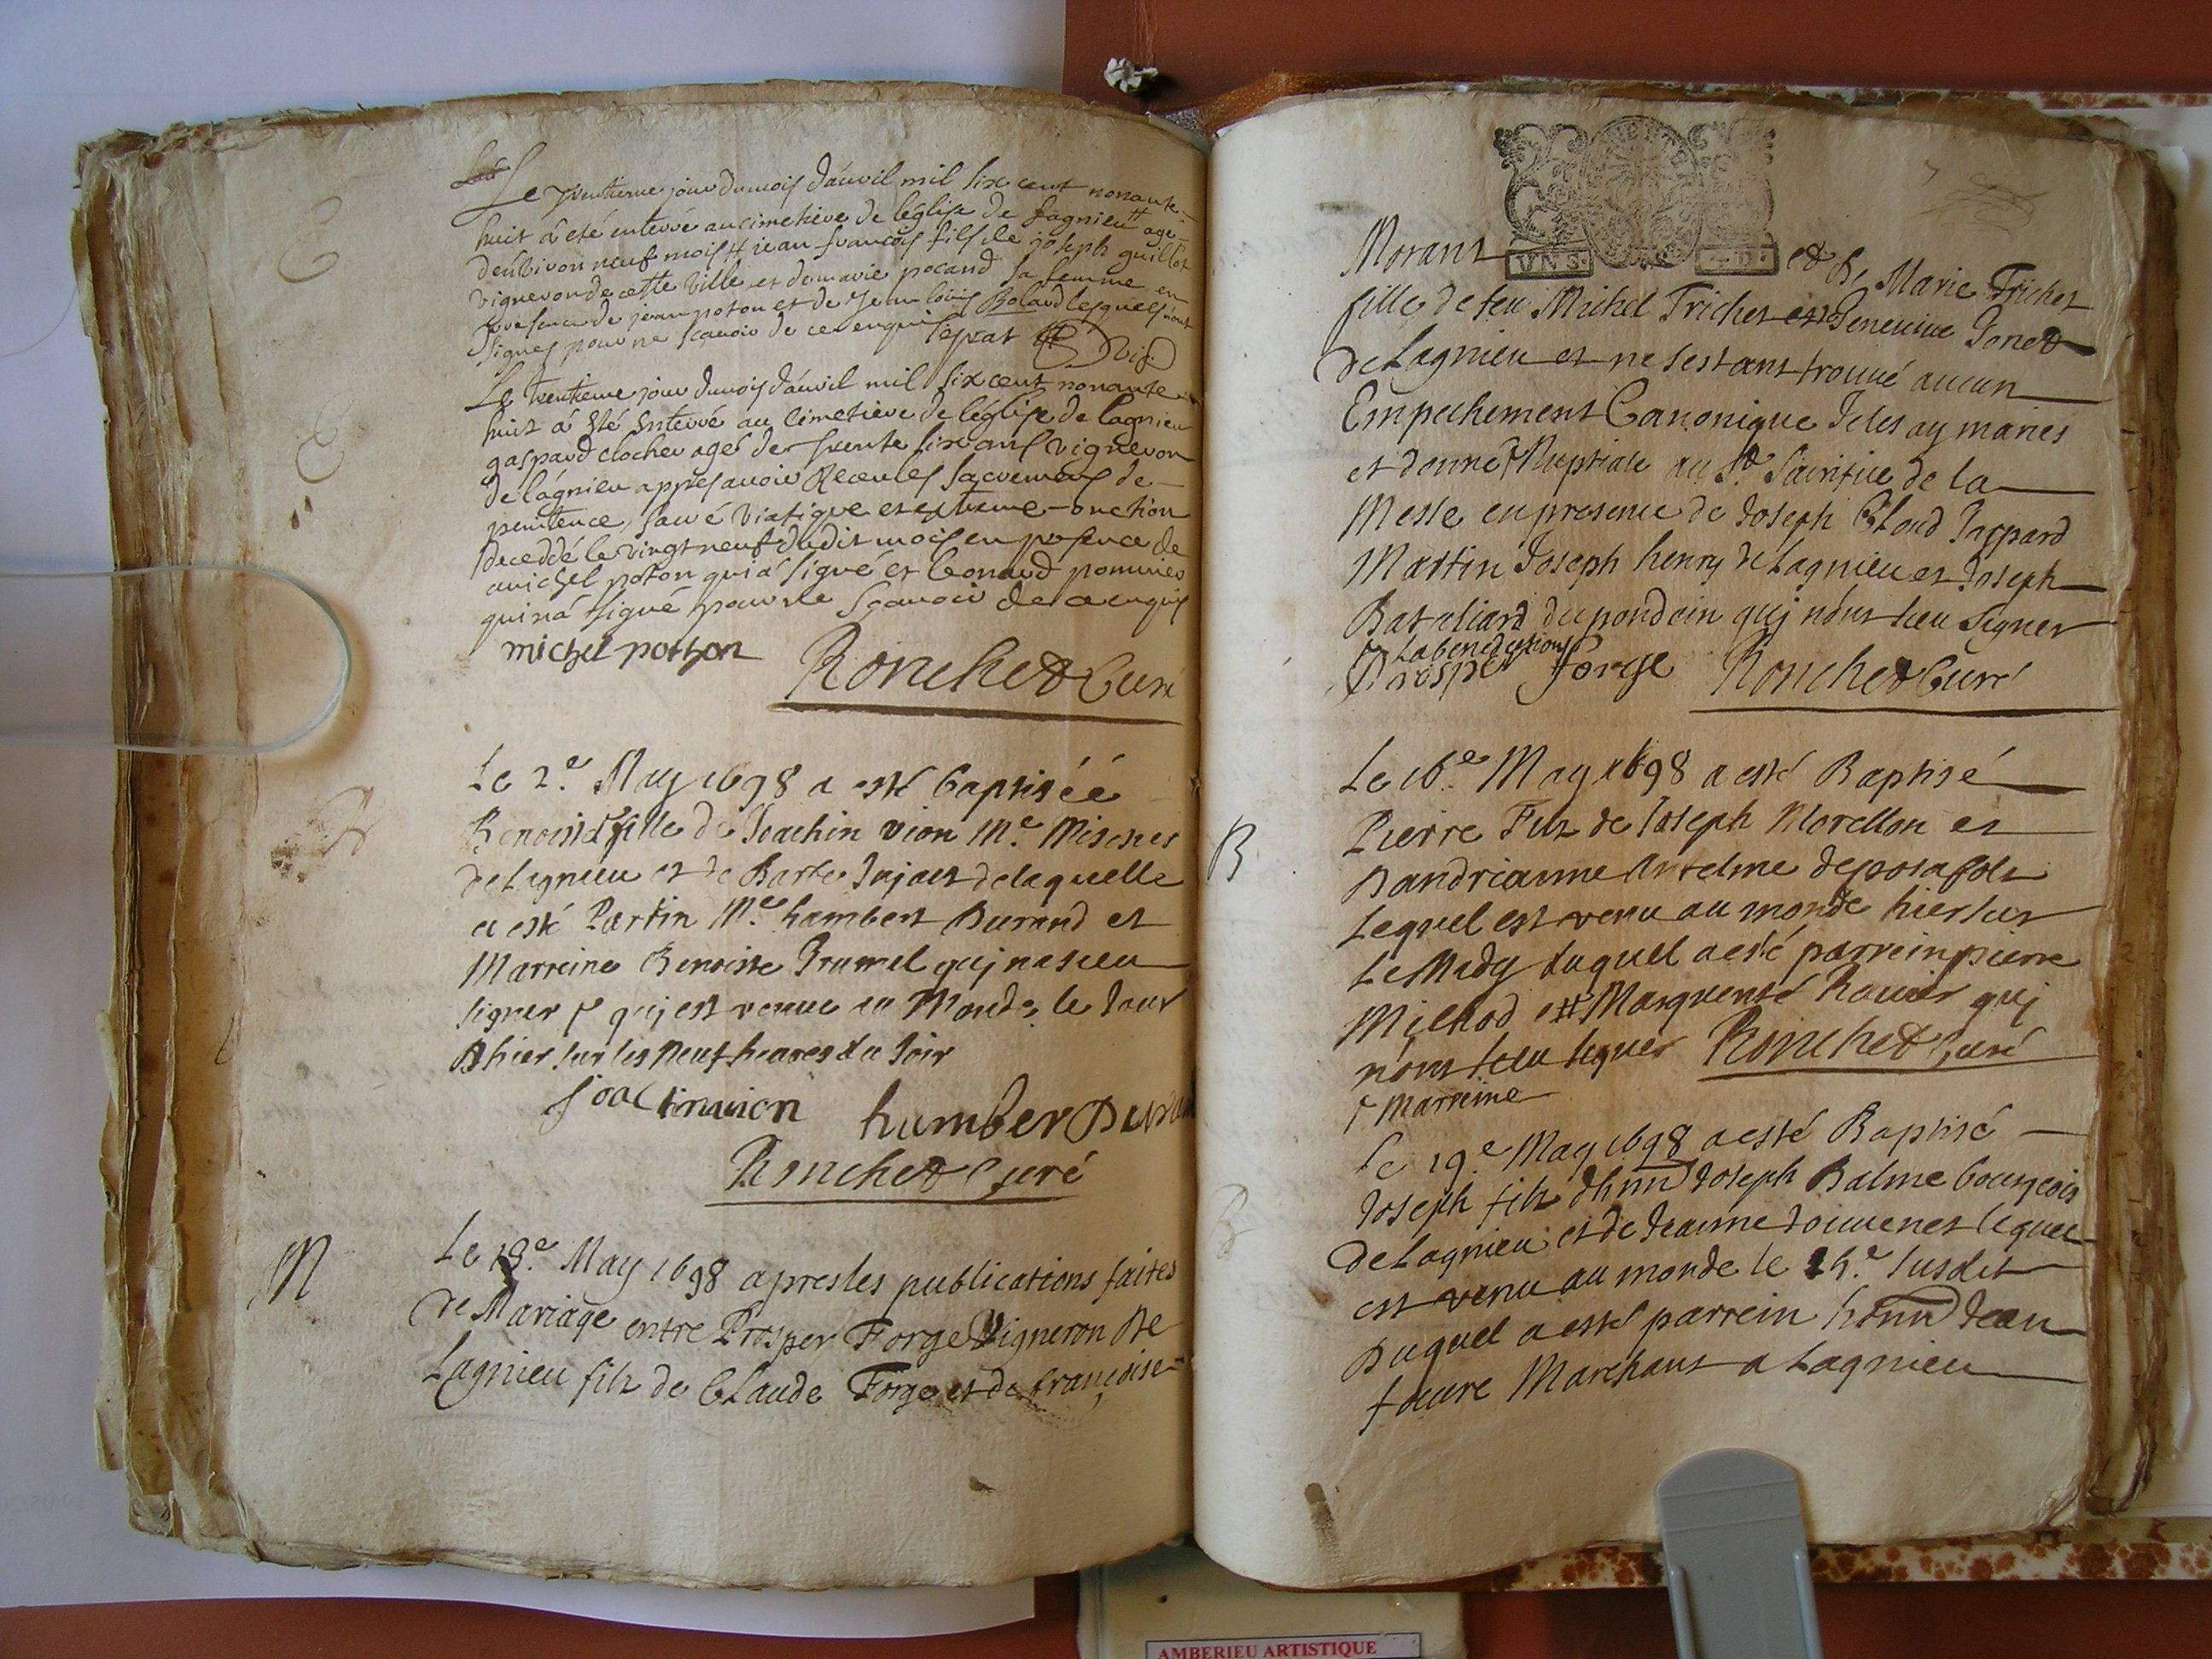 Le trentieme jour du mois d'auvil mil six cent nonante
huit à été enterré au cimetiere de léglise de Lagnieu # agé
d'environ neuf mois # jean francois fils de joseph guillot
vigneron de cette ville et de marie pocand sa femme en
presence de jean poton et de Jean louis Boland lesquels nont
signes pour ne scauoir de ce enquis
Le trentieme jour du mois d'auvil mil six cent nonante
huit à été enterré au cimetiere de léglise de lagnieu
gaspard clocher agé de trente six ans vigneron
de lagnieu appres auoir Receu les sacremens de
penitence, sacré viatique et extreme-onction
decedé le vingt neuf dudit mois en presence de
michel poton qui à signé et leonard pommier
qui n'à signé pour ne scauoir de ce enquis
michel pothon Ronchet Curé
Le 2.e May 1698 a esté baptiséé
Benoiste fille de Joachin vion M.e
de Lagnieu et de Barbe Jujat de laquelle
a esté Partin M.e humbert Durand et
Marreine Benoiste Brumel quj na sceu
signer quj est venue au Monde le Jour
dhier sur les neuf heures du soir
Joactin vion humber Duran
Ronchet Curé
M
Le 18.e May 1698 apres les publications faites
de Mariage entre Prosper Forge Vigneron De
Lagnieu filz de Claude Forge et de francoise
Morant et de Marie Trichet
fille de feu Michel Trichet et Geneuiue Gonet
de Lagnieu et ne sestant trouué aucun
Empechement Canonique Je les ay mariés
et donne Nuptiale au St. Sacrifice de la
Messe en presence de Joseph Blond Gaspard
Martin Joseph henry de Lagnieu et Joseph
Bataliard du pondein quj nont sceu signer
la benediction
Prosper forge Ronchet Curé
B
Le 16.e May 1698 a esté Baptisé
Pierre Filz de Joseph Morellon et
Dandrianne Antelme deposafolz
Lequel est venu au monde hier sur
Le Midy duquel a esté parrein pierre
Milhod et Marguerite Rauier quj
nont sceu signer Ronchet Curé
Marreine
B
Le 19.e May 1698 a esté Baptisé
Joseph filz dhnn Joseph Balme bourgeois
de Lagnieu et de Jeanne Jouuenet lequel
est venu au monde le 15.e susdit
Duquel a esté parrein honn Jean
faure Marchant a Lagnieu
AMBERIEU ARTISTIQUE